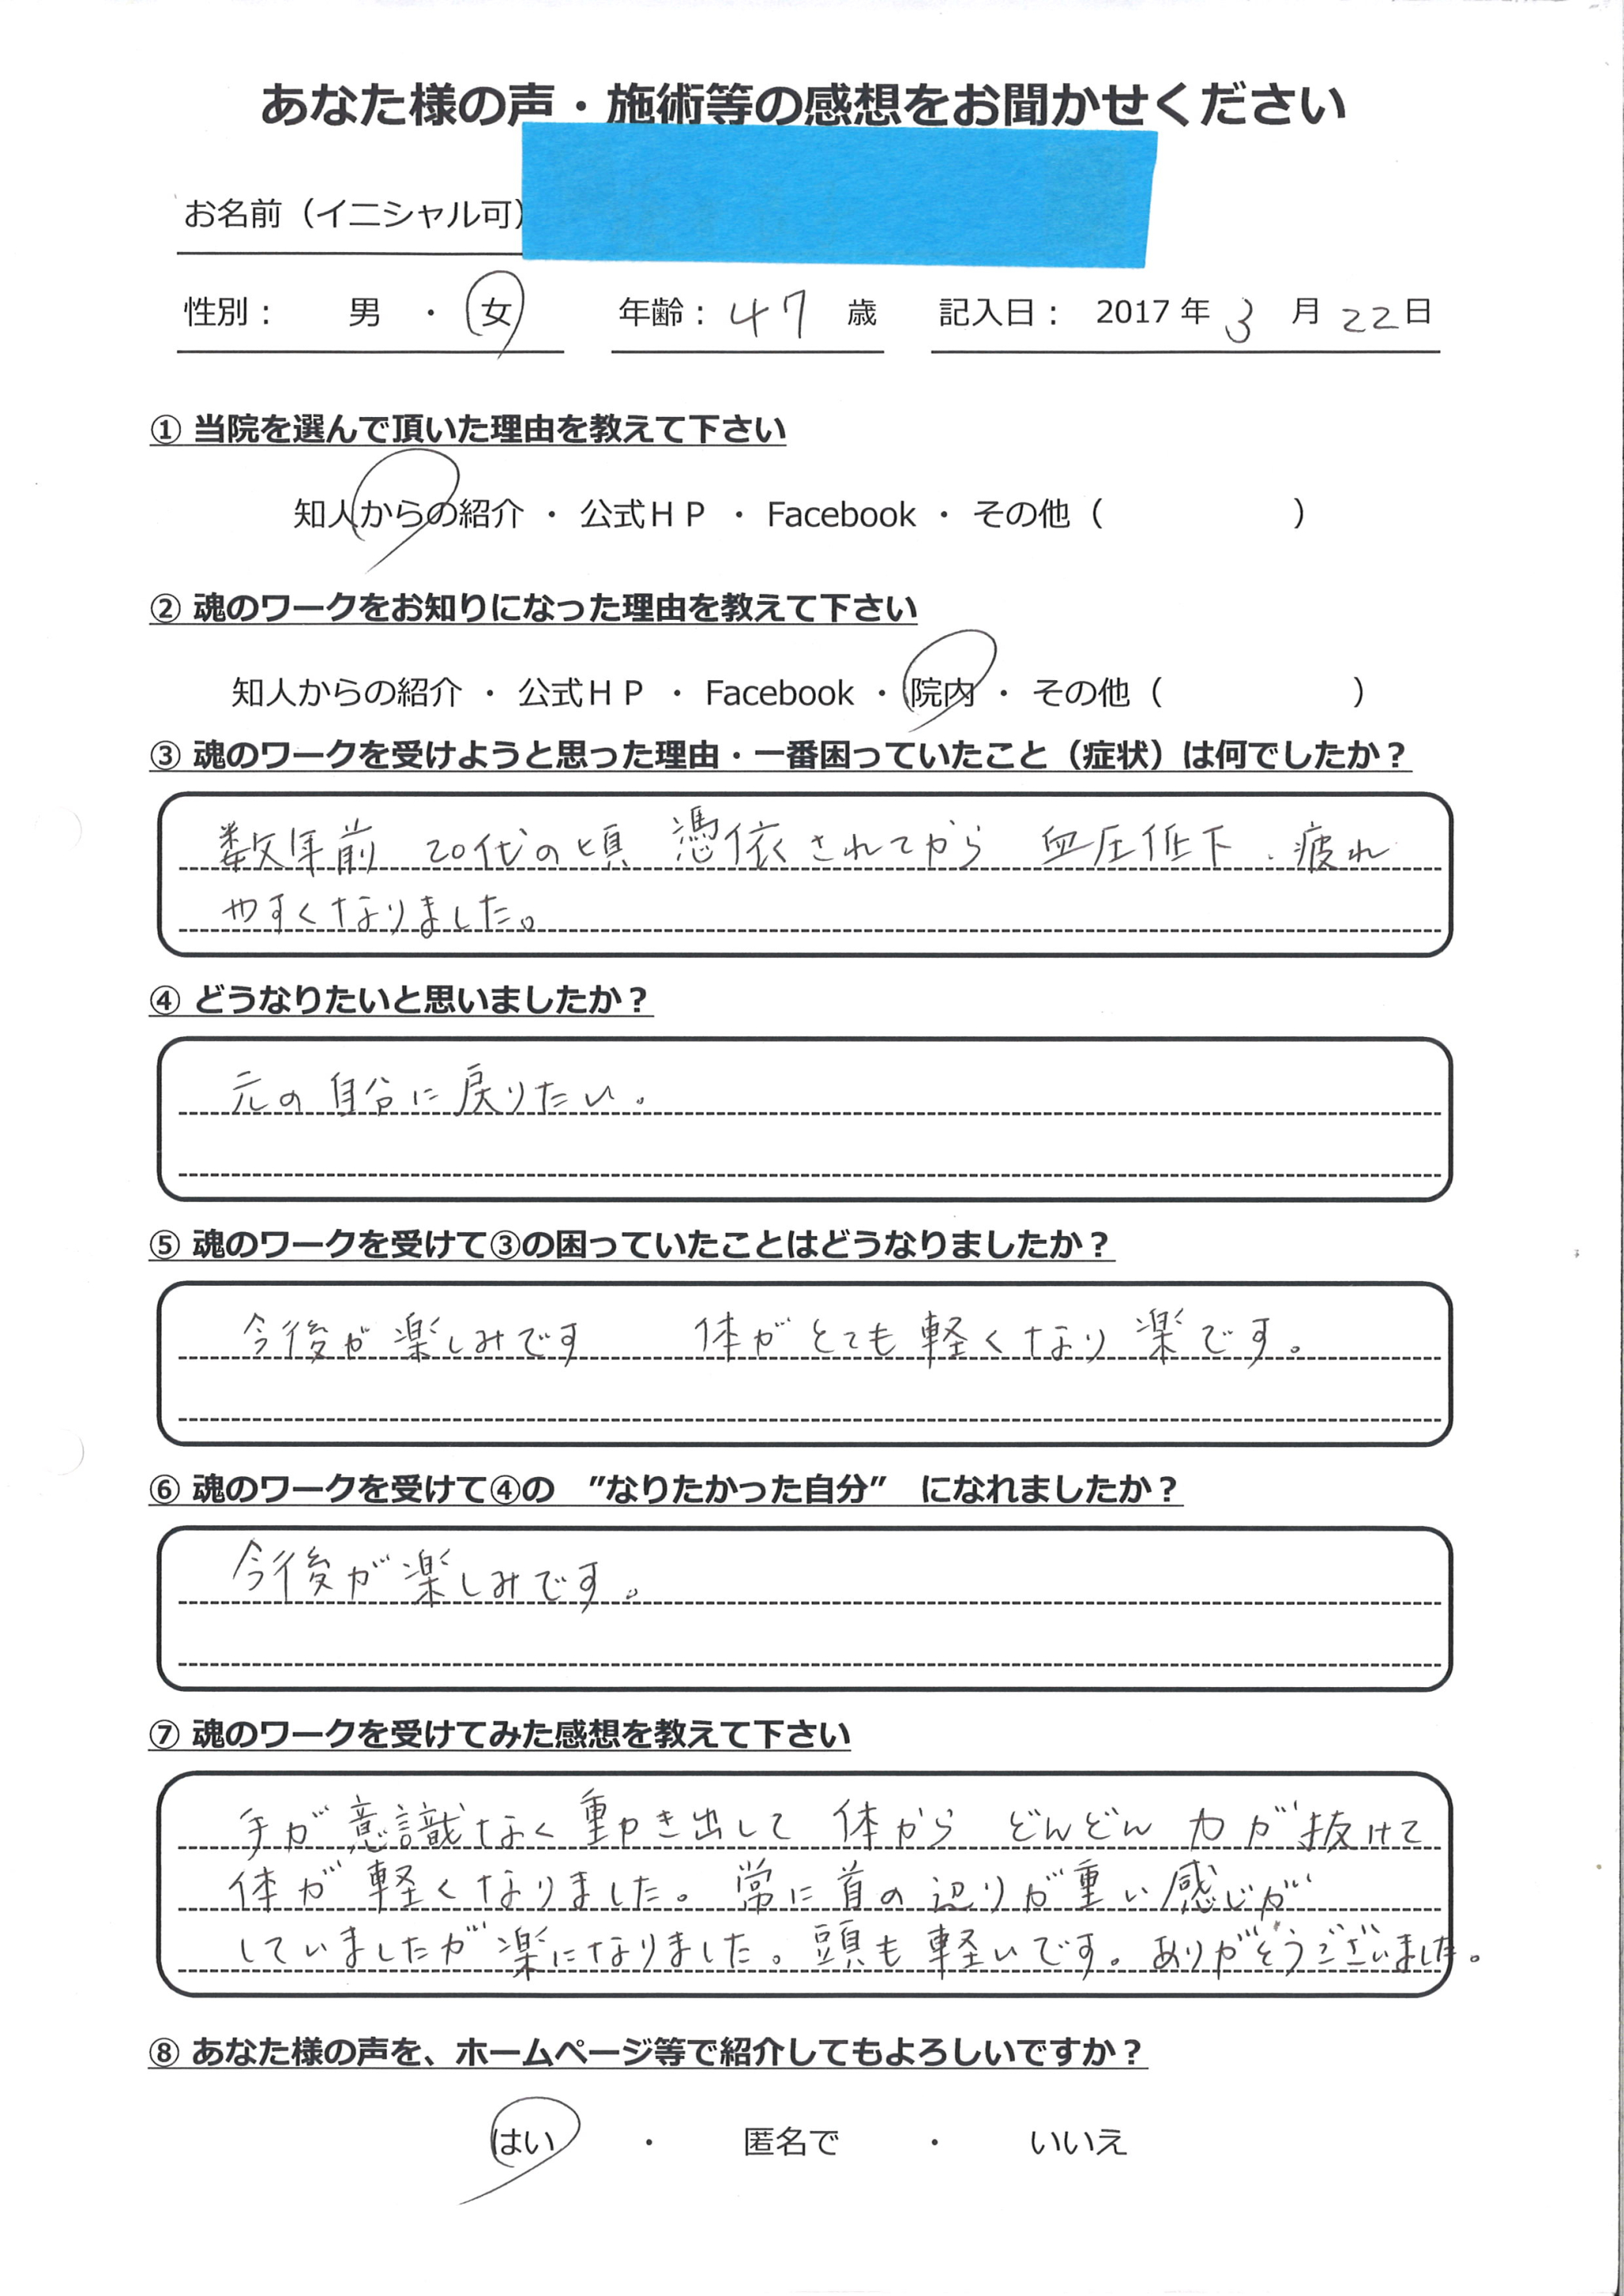 あなた様の声・施術等の感想をお聞かせください
お名前（イニシャル可）
性別： 男 ・ 女 年齢： 47 歳 記入日： 2017 年 3 月 22 日
① 当院を選んで頂いた理由を教えて下さい
知人からの紹介 ・ 公式ＨＰ ・ Facebook ・ その他（ ）
② 魂のワークをお知りになった理由を教えて下さい
知人からの紹介 ・ 公式ＨＰ ・ Facebook ・ 院内 ・ その他（ ）
③ 魂のワークを受けようと思った理由・一番困っていたこと（症状）は何でしたか？
数年前 20代の頃 憑依されてから 血圧低下、疲れ
やすくなりました。
④ どうなりたいと思いましたか？
元の自分に戻りたい。
⑤ 魂のワークを受けて③の困っていたことはどうなりましたか？
今後が楽しみです 体がとても軽くなり楽です。
⑥ 魂のワークを受けて④の ”なりたかった自分” になれましたか？
今後が楽しみです。
⑦ 魂のワークを受けてみた感想を教えて下さい
手が意識なく動き出して 体から どんどん 力が抜けて
体が軽くなりました。常に首の辺りが重い感じが
していましたが楽になりました。頭も軽いです。ありがとうございました。
⑧ あなた様の声を、ホームページ等で紹介してもよろしいですか？
はい ・ 匿名で ・ いいえ